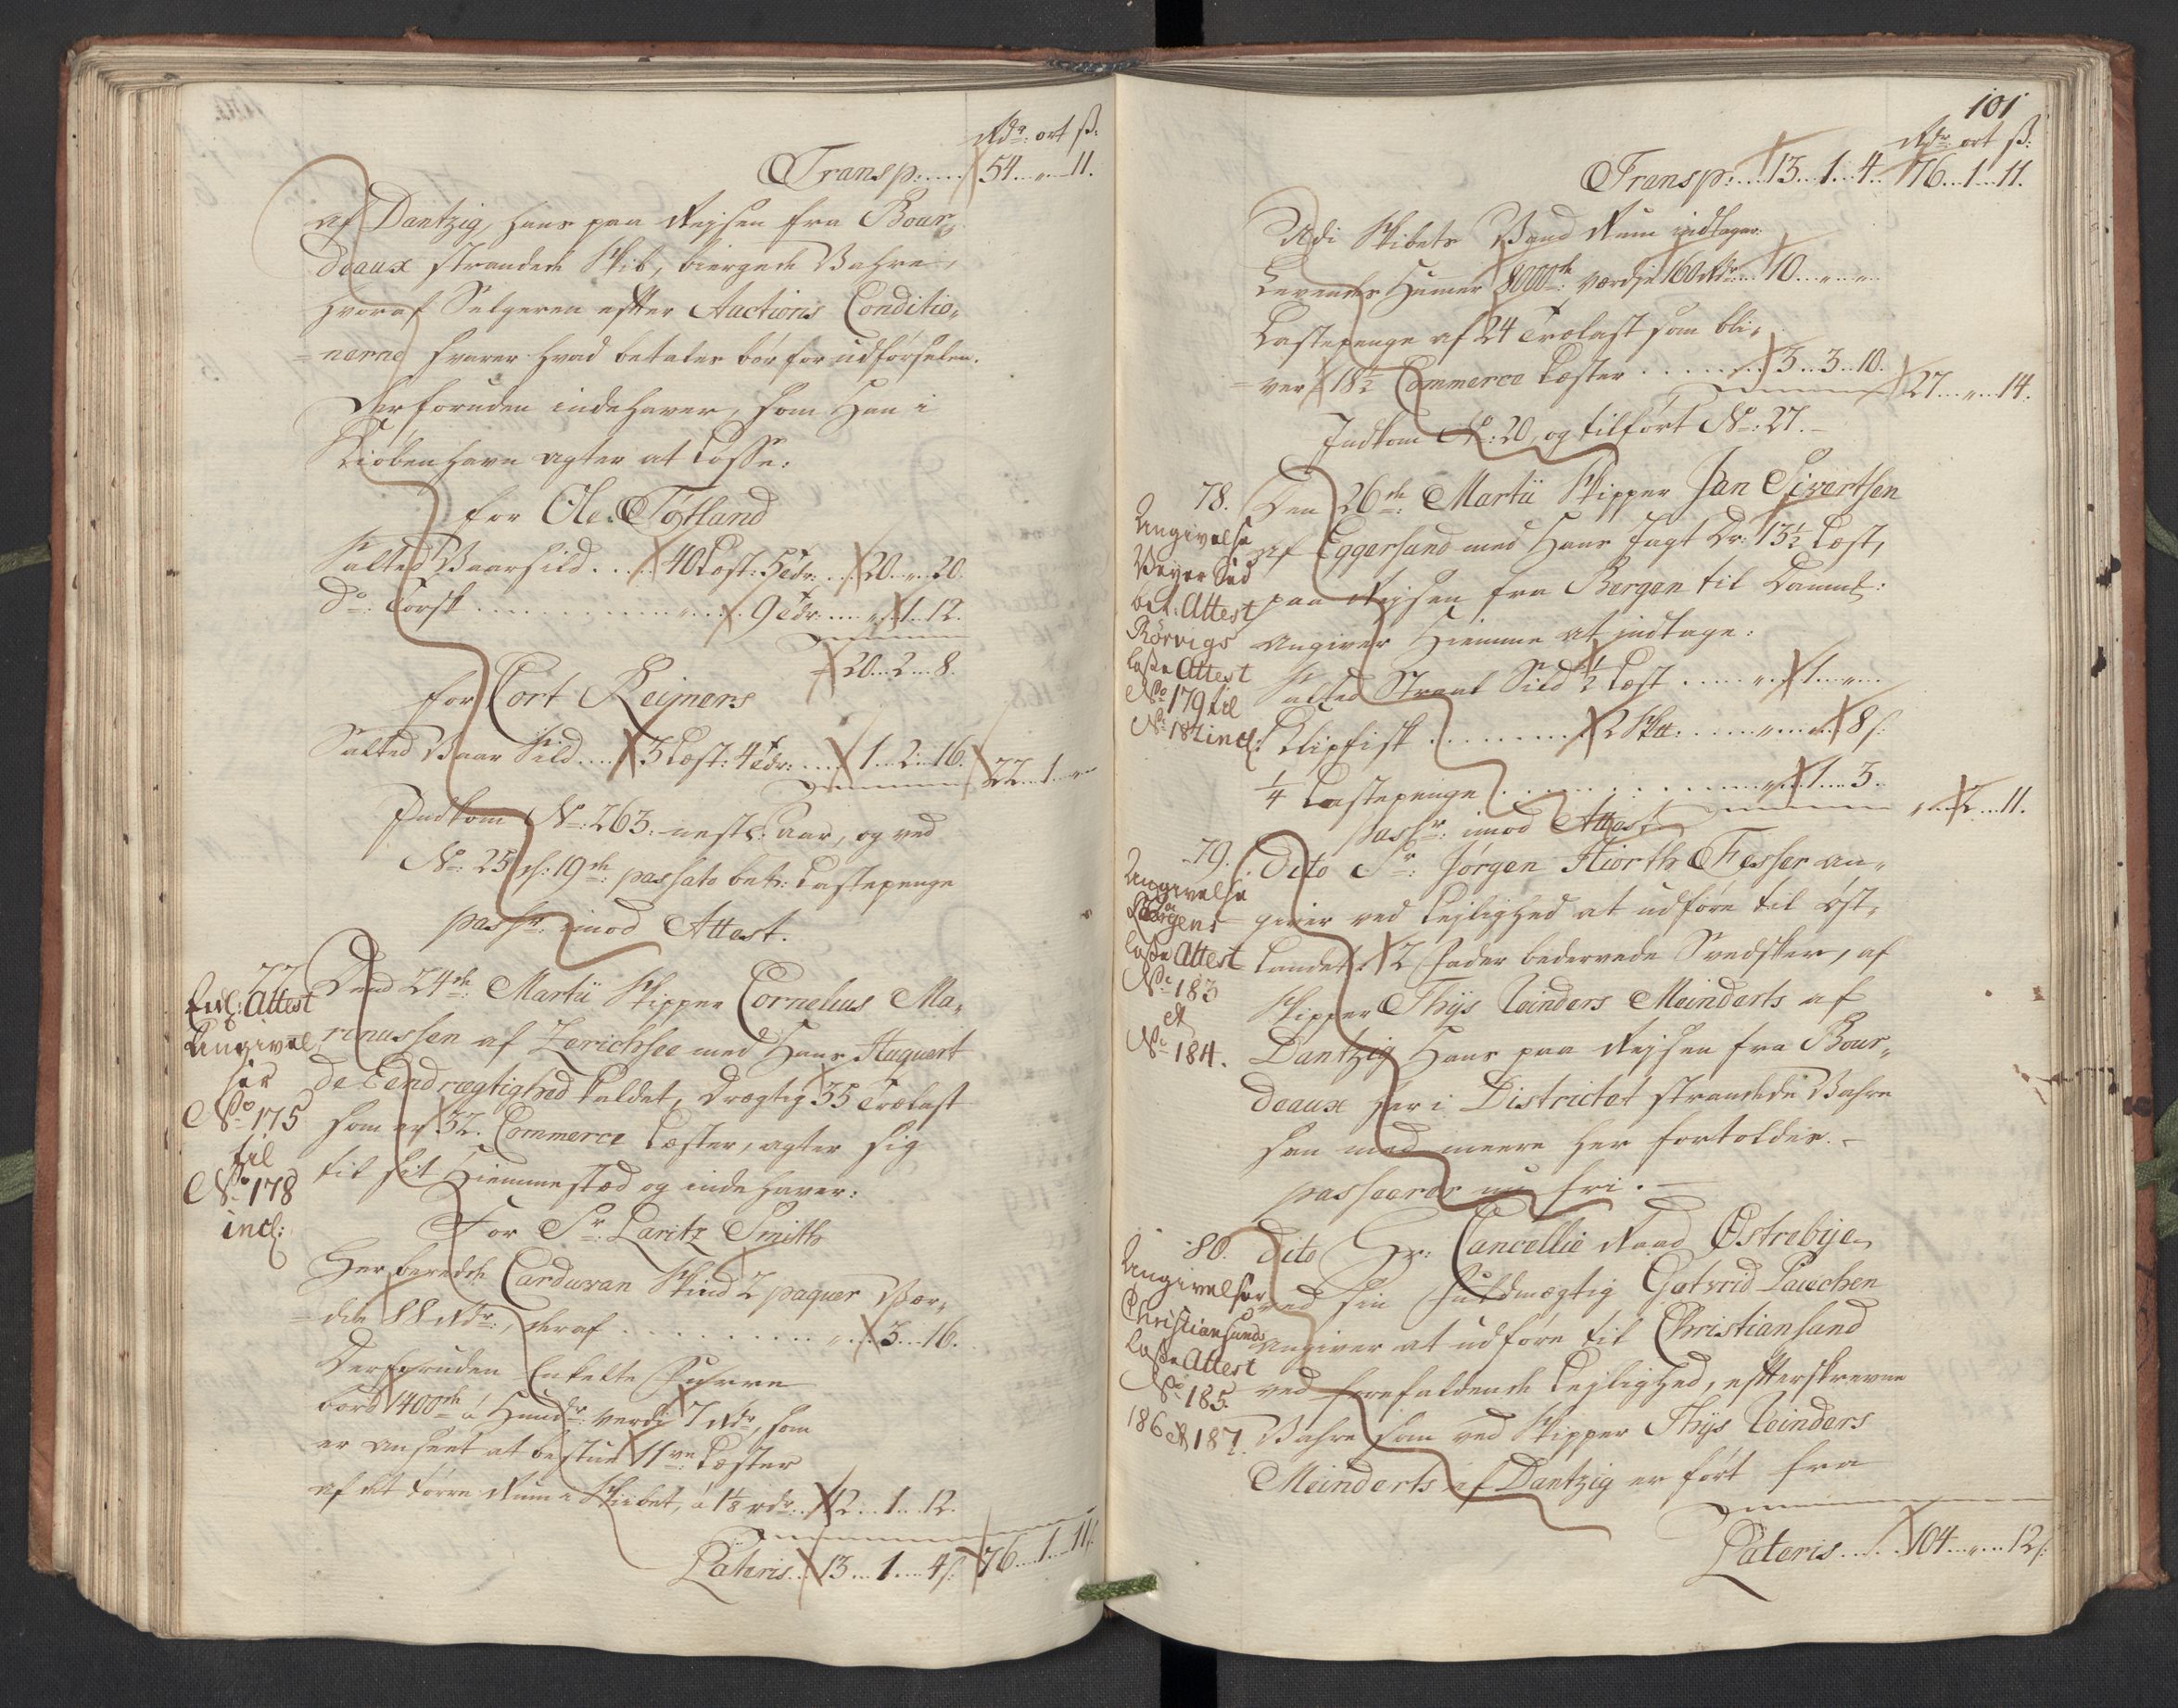 Rdr: ort ß:
Transp: .... 54 .. „ .. 11.
af Dantzig, hans paa Reysen fra Bour„
deaux strandede Skib, biergede Vahre,
hvoraf Selgeren efter Auctions Conditio„
nerne svarer hvad betales bør for udførselen.
Derforuden indehaver, som Han i
Kiøbenhavn agter at losse:
for Ole Tøtland
Salted Vaarsild .... 40 Læst: 5 Tdr: ... 20 .. „ .. 20.
Do: Torsk .... „ .. 9 Tdr: ... „ .. 1 .. 12.
20 .. 2 .. 8.
for Cort Reimers
Salted Vaar Sild .... 3 Læst: 4 Tdr: .... 1 .. 2 .. 16. 22 .. 1 .. „
Indkom No: 263: nestl: Aar, og ved
No: 25 d: 19de: passato bet: Lastepenge
passr: imod Attest.
77. Dend 24de: Martii Skipper Cornelius Ma„
rinussen af Zerichsee med Hans Huquert
de Eendrægtighed kaldet, drægtig 35 Trælast
som er 32. Commerce Læster, agter sig
til sit Hiemmestæd og indehaver:
Angivel„
ser
No 175
til
No 178
incl:
For Sr: Laritz Smith
Her beredte Carduvan Skind 2 paquer Vær„
die 88 Rdr:, deraf .... „ .. 3 .. 16.
Derforuden Enkelte Furre
bord 1400de á Hundr: verdi 7 Rdr, som
er anseet at bestue 11ve: Læster
af det tørre Rum i Skibet, á 1 1/8 rdr: .. 12 .. 1 .. 12.
Lateris .. 13 .. 1 .. 4 ß: 76 .. 1 .. 11 ß:
101
Rdr: ort ß:
Transp: ... 13 .. 1 .. 4 .. 76 .. 1 .. 11.
Udi Skibets Rum indtager:
Levende Hummer 8000de: værdie 160 Rdr: .. 10 .. „ .. „
Lastepenge af 24 Trælast som bli„
ver 18 1/2 Commerce Læster ..... 3 .. 3 .. 10. 27 .. „ .. 14.
Indkom No: 20, og tilført No: 27.
78. Den 26de: Martii Skipper Jan Sivertsen
af Eggersund med Hans Jagt Dr: 13 1/2 Læst,
paa Reysen fra Bergen til Danm:
Angiver Hiemme at indtage:
Salted Straal Sild 1/2 Læst ..... „ .. 1 .. „
Klipfisk ........ 2 Skt: ..... „ .. „ .. 8 ß:
1/4 Lastepenge ........ „ .. 1 .. 3. „ .. 2 .. 11.
passr: imod Attest
Angivelse
Attest
Rørvigs
losse Attest
No 179 til
No 182 incl:
79. Dito Sr: Jørgen Hiorth Fesser an„
giver ved Lejlighed at udføre til Øst„
Landet 2 Fader bedervede Svedsker, af
Skipper Thijs Reinders Meinderts af
Dantzig Hans paa Reysen fra Bour„
deaux her i Districtet strandede Vahre
som med meere her fortoldes.
passeerer nu frie.
Angivelse
Bergens
losse Attest
No 183
et
No 184.
80. Dito Hr: Cancellie Raad Østrebye,
ved sin Fuldmægtig Gotvrid Pauchen
Angiver at udføre til Christiansand
ved forefaldende Lejlighed, efterskrevne
Vahre som ved Skipper Thijs Reinders
Meinderts af Dantzig er ført fra
Angivelser
Christiansunds
losse Attest
No 185.
186 et 187.
Lateris .... 104 .. „ .. 12 ß: